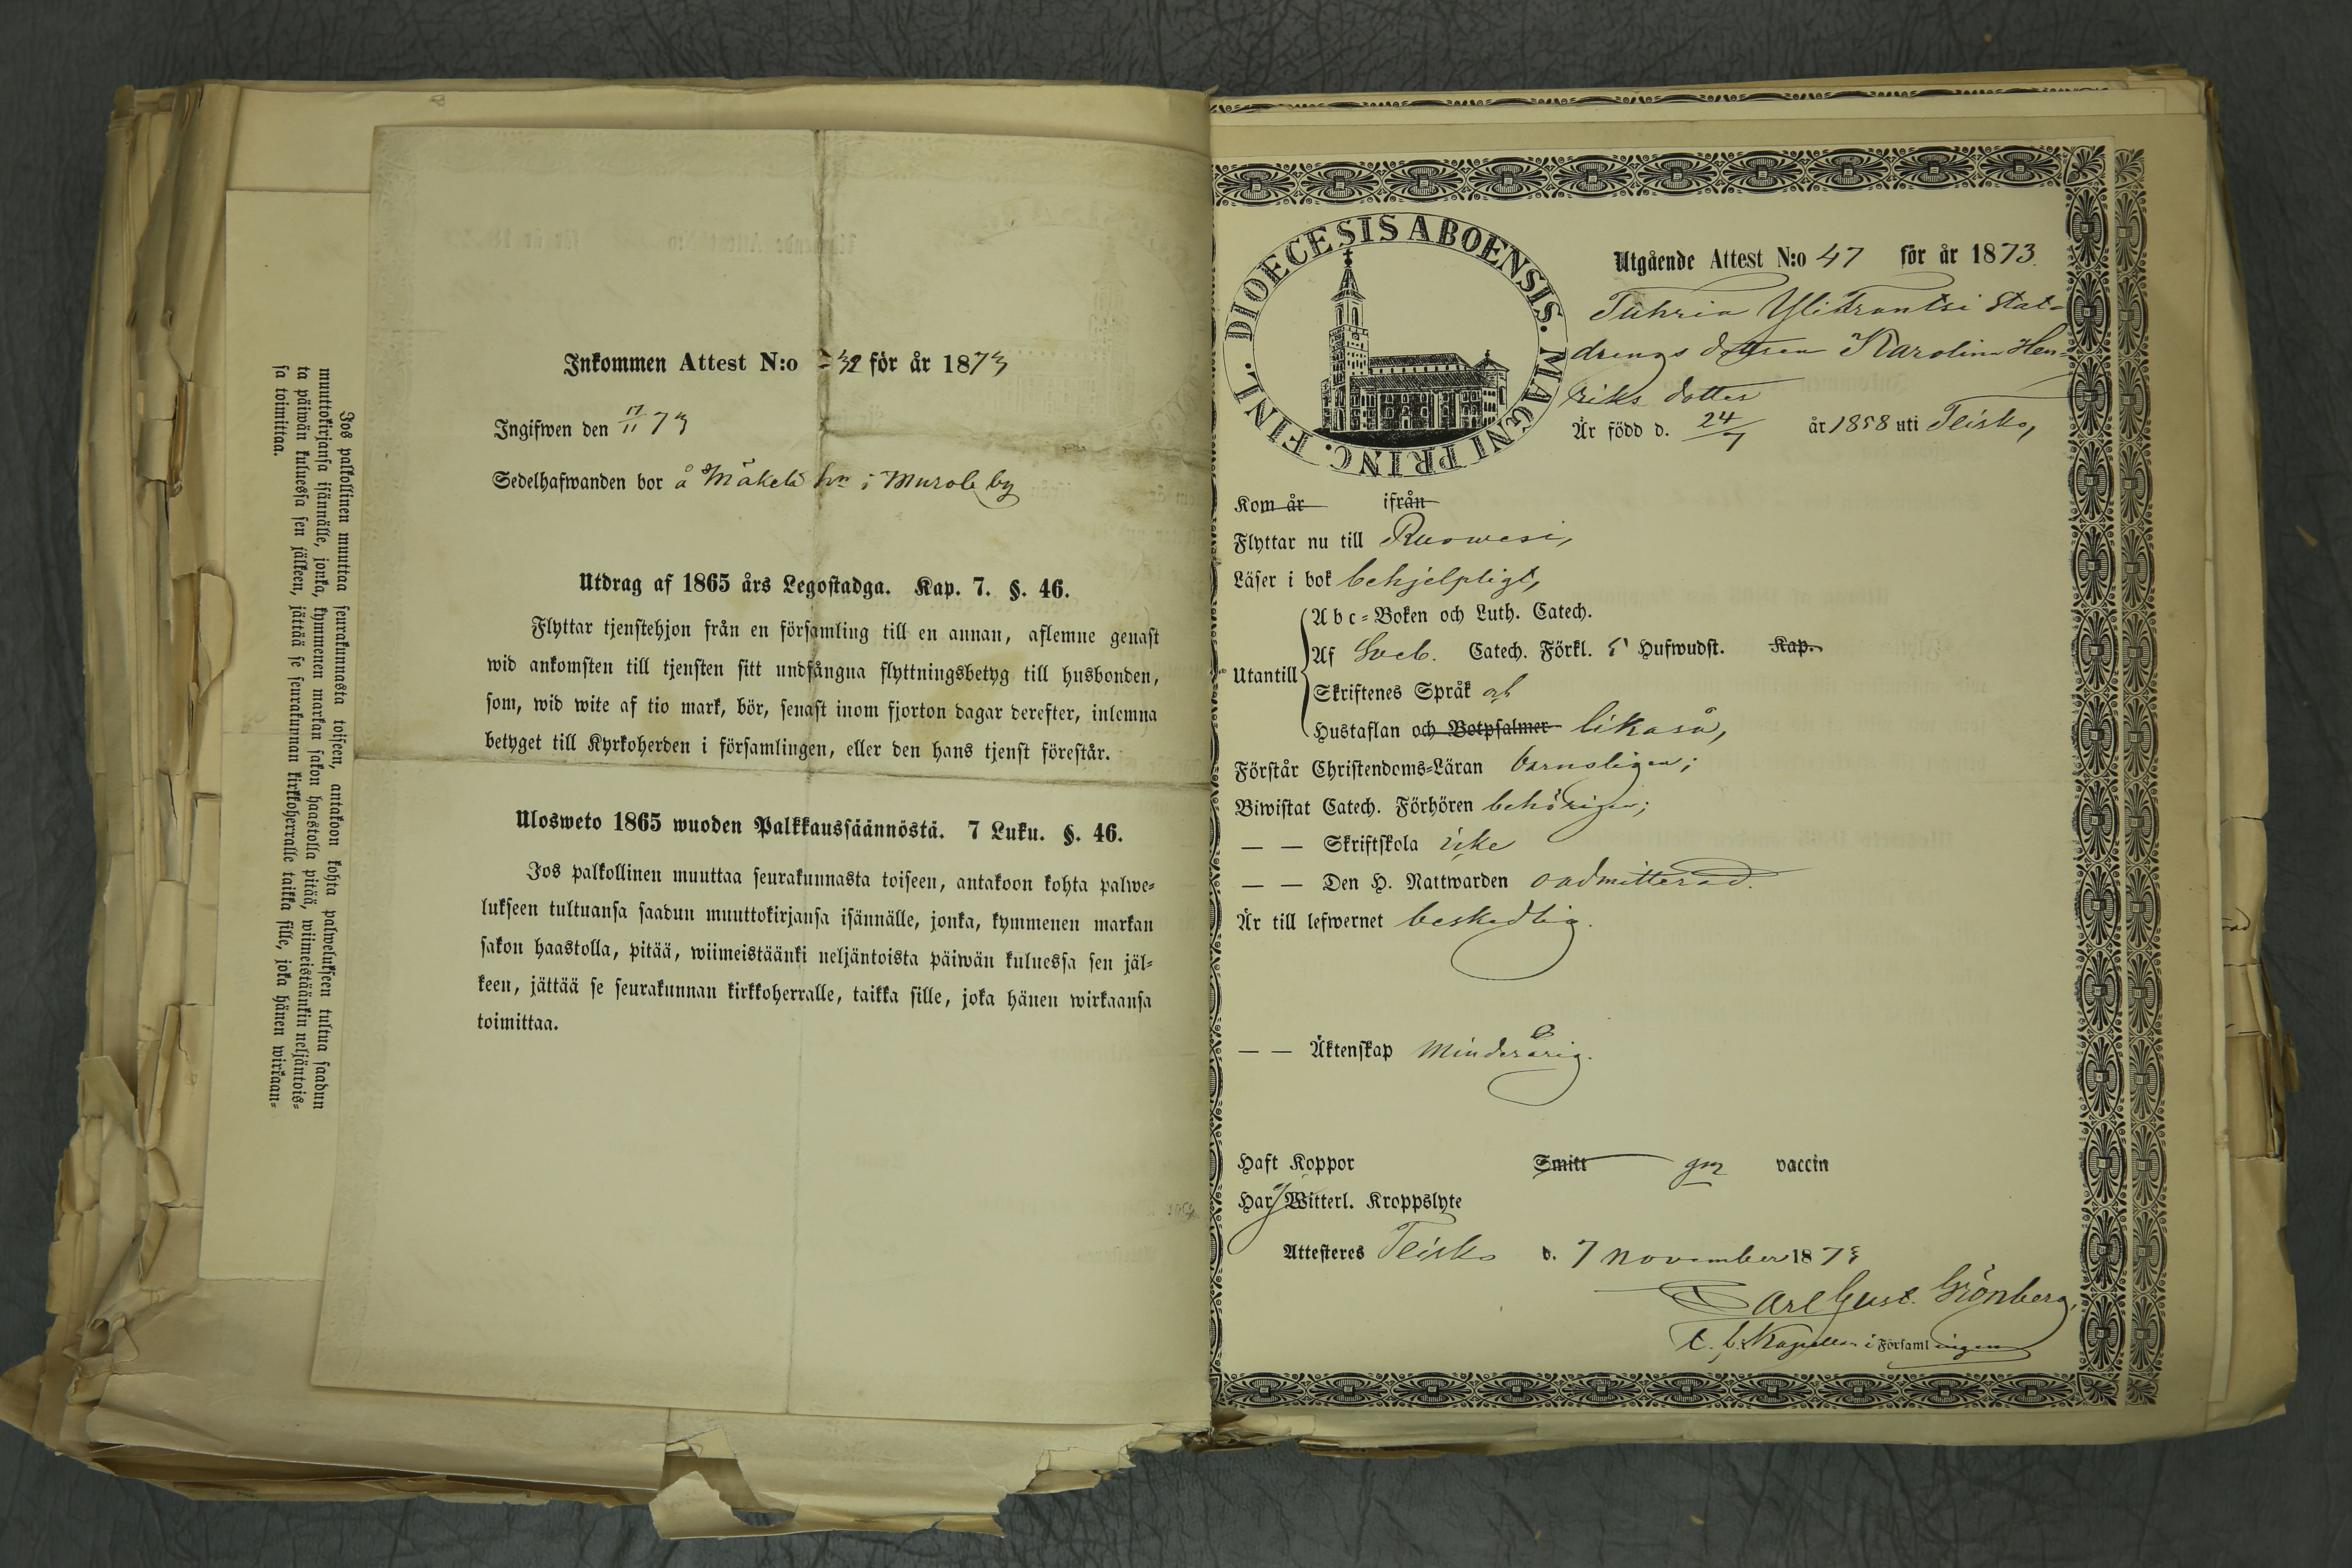 Jos palkollinen muuttaa seurakunnasta toiseen, antakoon kohta palwelukseen tultua saadun
muuttokirjansa isännälle, jonka, kymmenen markan sakon haastolla pitää, wiimeistäänkin neljäntois-
ta päiwän kuluessa sen jälkeen, jättää se seurakunnan kirkkoherralle taikka sille, joka hänen wirkaan-
sa toimittaa.
Inkommen Attest N:o 32 för år 1873
Ingifwen den 17/11 73
Sedelhafwanden bor å Mäkelä hn i Murole by
Utdrag af 1865 års Legostadga. Kap. 7. §. 46.
Flyttar tjenstehjon från en församling till en annan, aflemne genast
wid ankomsten till tjensten sitt undfångna flyttningsbetyg till husbonden,
som, wid wite af tio mark, bör, senast inom fjorton dagar derefter, inlemna
betyget till Kyrkoherden i församlingen, eller den hans tjenst förestår.
Ulosweto 1865 wuoden Palkkaussäännöstä. 7 Luku. §. 46.
Jos palkollinen muuttaa seurakunnasta toiseen, antakoon kohta palwe-
lukseen tultuansa saadun muuttokirjansa isännälle, jonka, kymmenen markan
sakon haastolla, pitää, wiimeistäänki neljäntoista päiwän kuluessa sen jäl-
keen, jättää se seurakunnan kirkkoherralle, taikka sille, joka hänen wirkaansa
toimittaa.
DIOECESIS ABOENSIS. MAGNI PRINC. FINL.
Utgående Attest N:o 47 för år 1873
Ylikrantsi Stat-
drengs dottren Karolina Hen-
riks dotter
Är född d. 24/7 år 1858 uti Teisko,
Kom år ifrån
Flyttar nu till Ruowesi,
Läser i bok behjelpligt,
Utantill
Abc-Boken och Luth. Catech.
Af Sveb. Catech. Förkl. 5 Hufwudst. Kap.
Skriftenes Språk och
Hustaflan och Botpsalmer likaså,
Förstår Christendoms-Läran barnsligen;
Biwistat Catech. Förhören behörigen;
— — Skriftskola icke
— — Den H. Nattwarden oadmitterad.
Är till lefwernet beskedlig.
— — Äktenskap Minderårig.
Haft Koppor Smitt gm vaccin
Har Witterl. Kroppslyte
Attesteres Teisko d. 7 November 1873
Carl Gust. Grönberg,
t. f. Kapellan i Församlingen